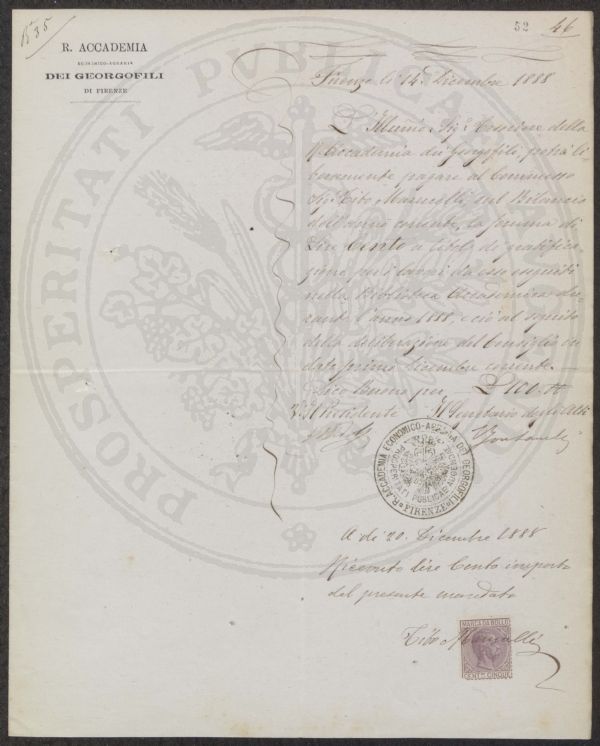 B.ne 35
52 46
R. ACCADEMIA
ECONOMICO-AGRARIA
DEI GEORGOFILI
DI FIRENZE
Firenze li 14. Dicembre 1888
L'Illmo. Sig. Tesoriere della
R. Accademia dei Georgofili potrà li-
beramente pagare al Commesso
Sig. Tito Marucelli, sul Bilancio
dell'anno corrente, la somma di
Lire Cento a titolo di gratifica-
zione per i lavori da esso eseguiti
nella Biblioteca Accademica du-
rante l'anno 1888, e ciò al seguito
della deliberazione del Consiglio in
data primo Dicembre corrente.
Dico Buono per £ 100. #
Il Presidente Il Segretario degli Atti
R. ACCADEMIA ECONOMICO-AGRARIA DEI GEORGOFILI
FIRENZE
PROSPERITATI PUBLICAE AUGENDAE
A dì 20. Dicembre 1888
Ricevuto lire Cento importo
del presente mandato
Tito Marucelli
MARCA DA BOLLO
CENT.MI CINQUE
PROSPERITATI PVBLICAE